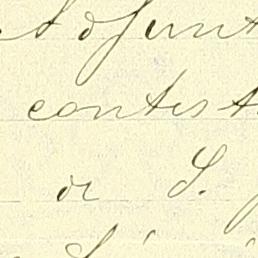 Adjunt
contest
de S.